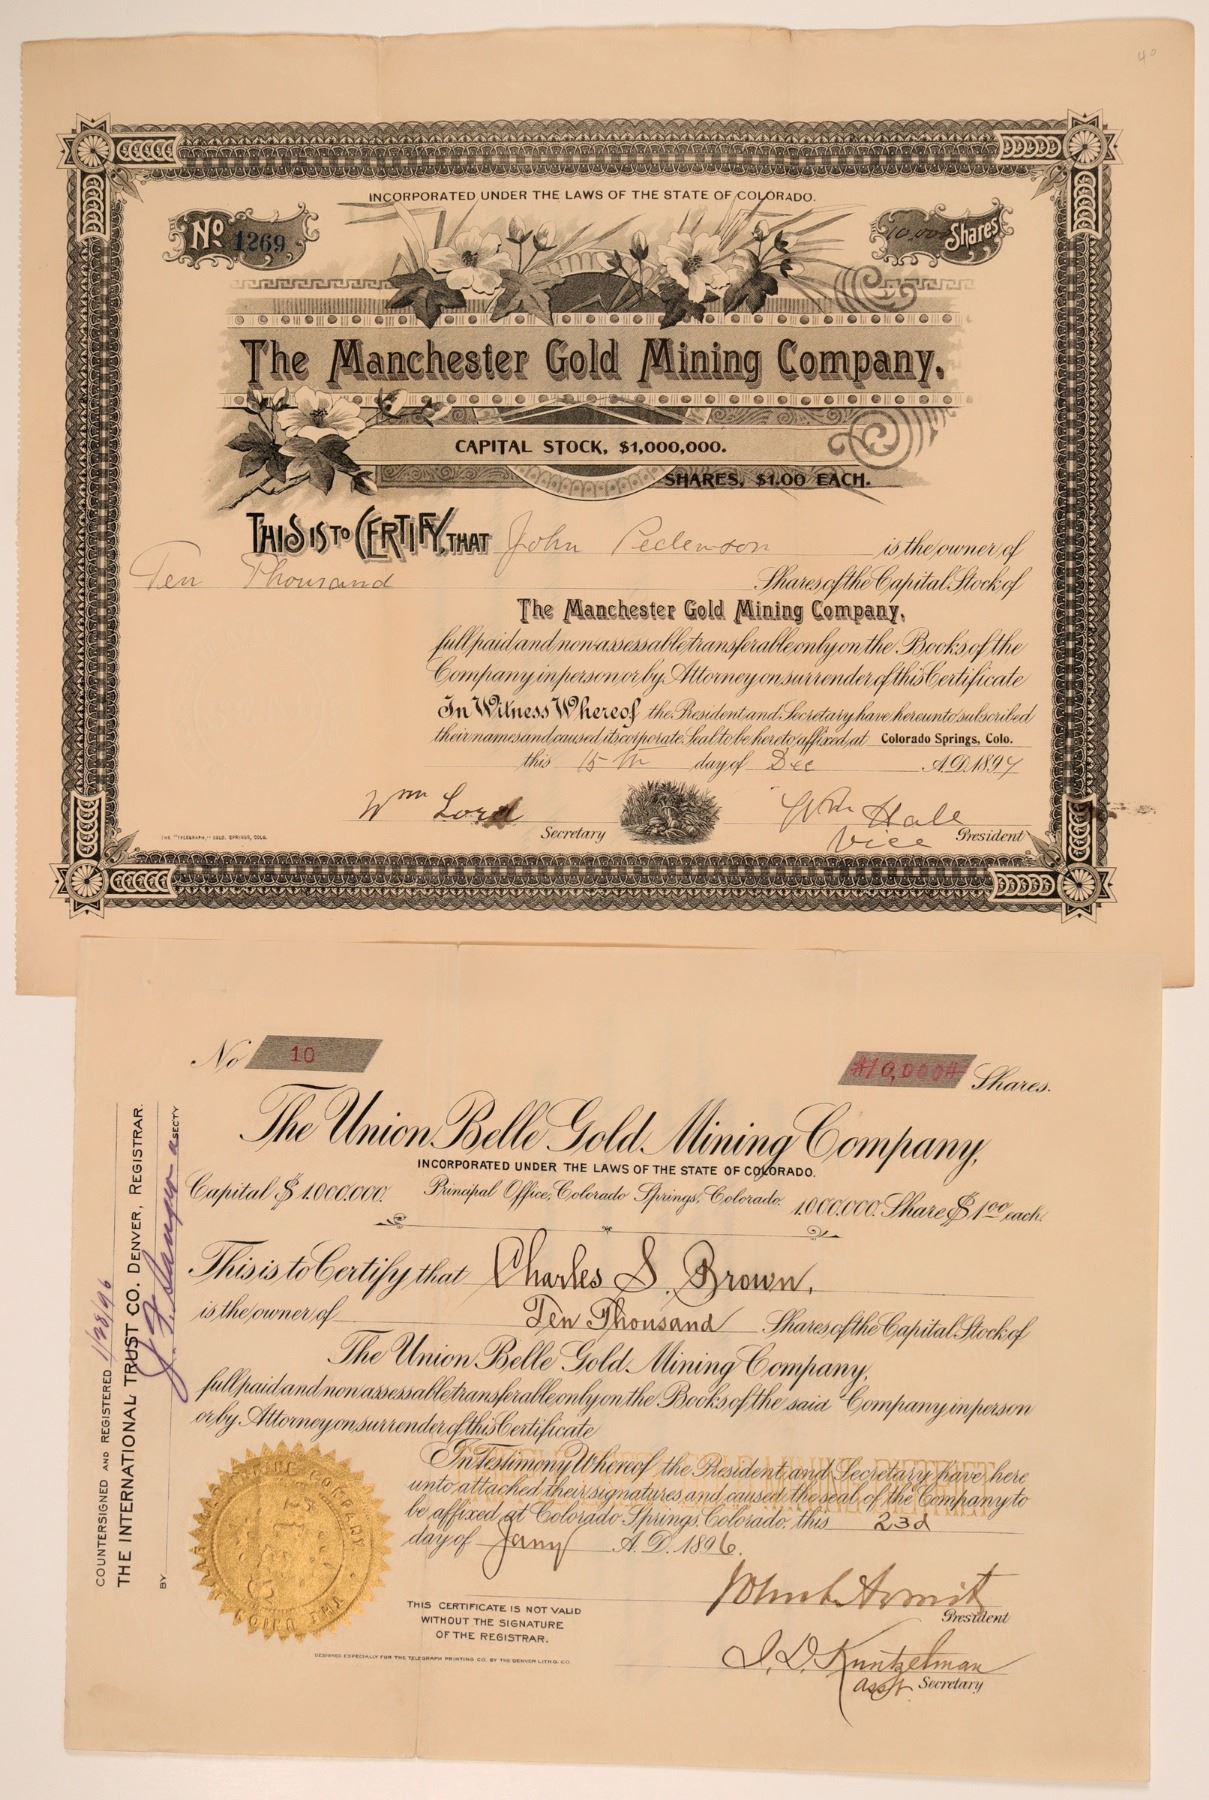 40
INCORPORATED UNDER THE LAWS OF THE STATE OF COLORADO.
No 1269
10,000 Shares
The Manchester Gold Mining Company.
CAPITAL STOCK, $1,000,000.
SHARES, $1.00 EACH.
THIS IS TO CERTIFY, THAT John Pedenson is the owner of
Ten Thousand Shares of the Capital Stock of
The Manchester Gold Mining Company,
full paid and non-assessable transferable only on the Books of the
Company in person or by Attorney on surrender of this Certificate
In Witness Whereof the President and Secretary have hereunto subscribed
their names and caused its corporate Seal to be hereto affixed at Colorado Springs, Colo.
this 15th day of Dec A.D. 1897
Wm Lord Secretary
Wm Hall
Vice President
THE "TELEGRAPH," COLO. SPRINGS, COLO.
No 10
#10,000# Shares.
The Union Belle Gold Mining Company,
INCORPORATED UNDER THE LAWS OF THE STATE OF COLORADO.
Capital $1.000.000. Principal Office, Colorado Springs, Colorado. 1.000.000. Share $1.00 each.
This is to Certify that Charles S. Brown,
is the owner of Ten Thousand Shares of the Capital Stock of
The Union Belle Gold Mining Company,
full paid and non assessable transferable only on the Books of the said Company in person
or by Attorney on surrender of this Certificate
In Testimony Whereof the President and Secretary have here
unto attached their signatures and caused the seal of the Company to
be affixed at Colorado Springs, Colorado, this 23d
day of Jany A.D. 1896.
President
I. D. Kuntzelman
asst Secretary
THIS CERTIFICATE IS NOT VALID
WITHOUT THE SIGNATURE
OF THE REGISTRAR.
DESIGNED ESPECIALLY FOR THE TELEGRAPH PRINTING CO. BY THE DENVER LITHO. CO.
COUNTERSIGNED AND REGISTERED 1/28/96
THE INTERNATIONAL TRUST CO. DENVER, REGISTRAR.
BY a SECTY